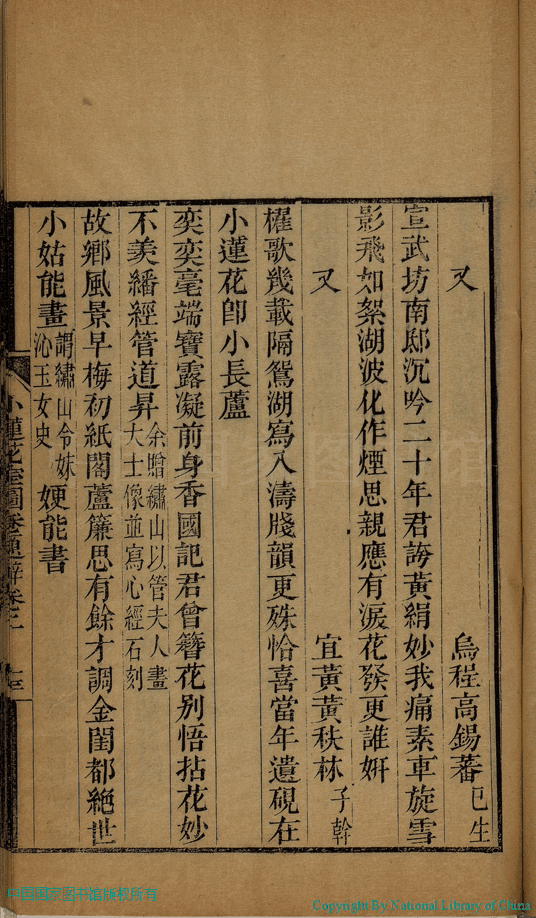 又
烏程高錫蕃 巳生
宣武坊南邸沉吟二十年君誇黃絹妙我痛素車旋雪
影飛如絮湖波化作煙思親應有淚花發更誰妍
又
宜黃黃秩林 子幹
櫂歌幾載隔鴛湖寫入濤牋韻更殊恰喜當年遺硯在
小蓮花卽小長蘆
奕奕毫端寶露凝前身香國記君曾簪花別悟拈花妙
不羨繙經管道昇 余贈繡山以管夫人畫
大士像並寫心經石刻
故鄉風景早梅初紙閣蘆簾思有餘才調金閨都絶世
小姑能畫 謂繡山令妹
沁玉女史 㛐能書
小蓮花室圖卷題辭卷之一
十三
中国国家图书馆版权所有
Copyright By National Library of China